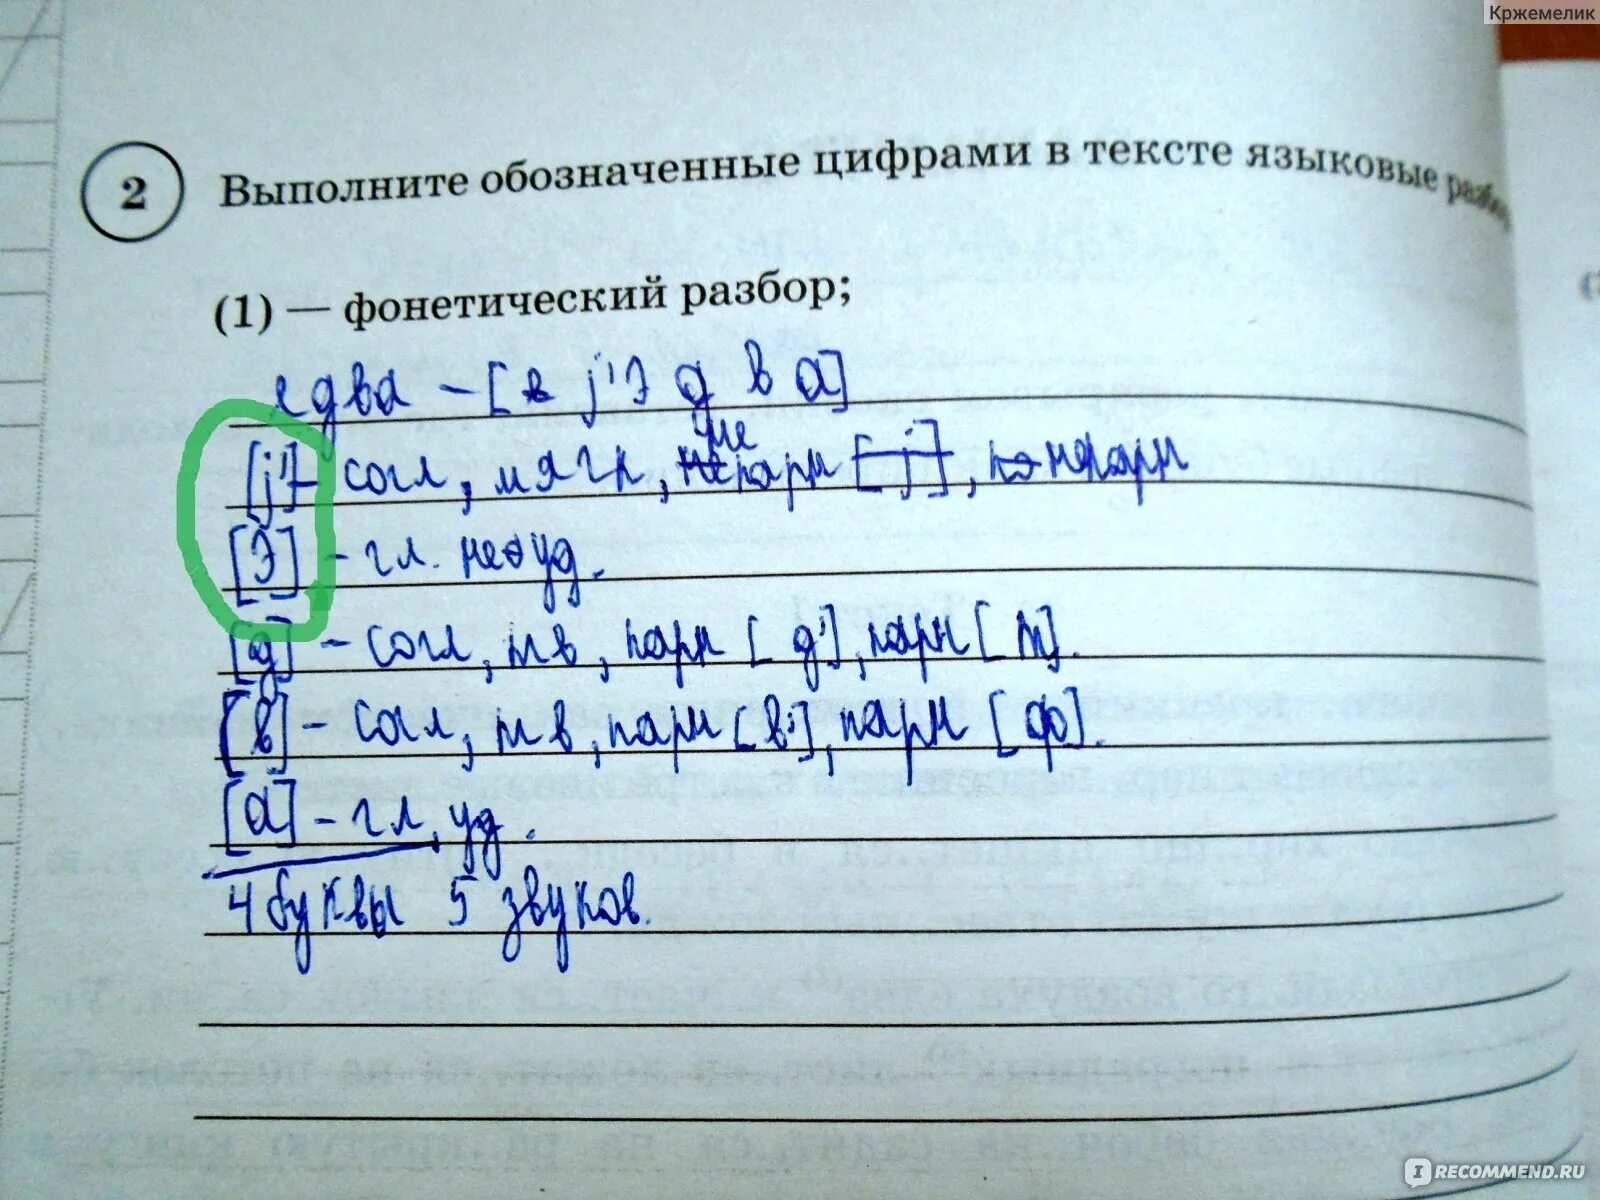 Кржемелик
2 Выполните обозначенные цифрами в тексте языковые
(1) — фонетический разбор;
едва – [ j' э д в а]
[j'] – согл, мягк, не парн [j], непарн
[э] – гл. неуд.
[д] – согл, тв, парн [д'], парн [т].
[в] – согл, тв, парн [в'], парн [ф].
[а] – гл, уд.
4 буквы 5 звуков.
IRECOMMEND.RU